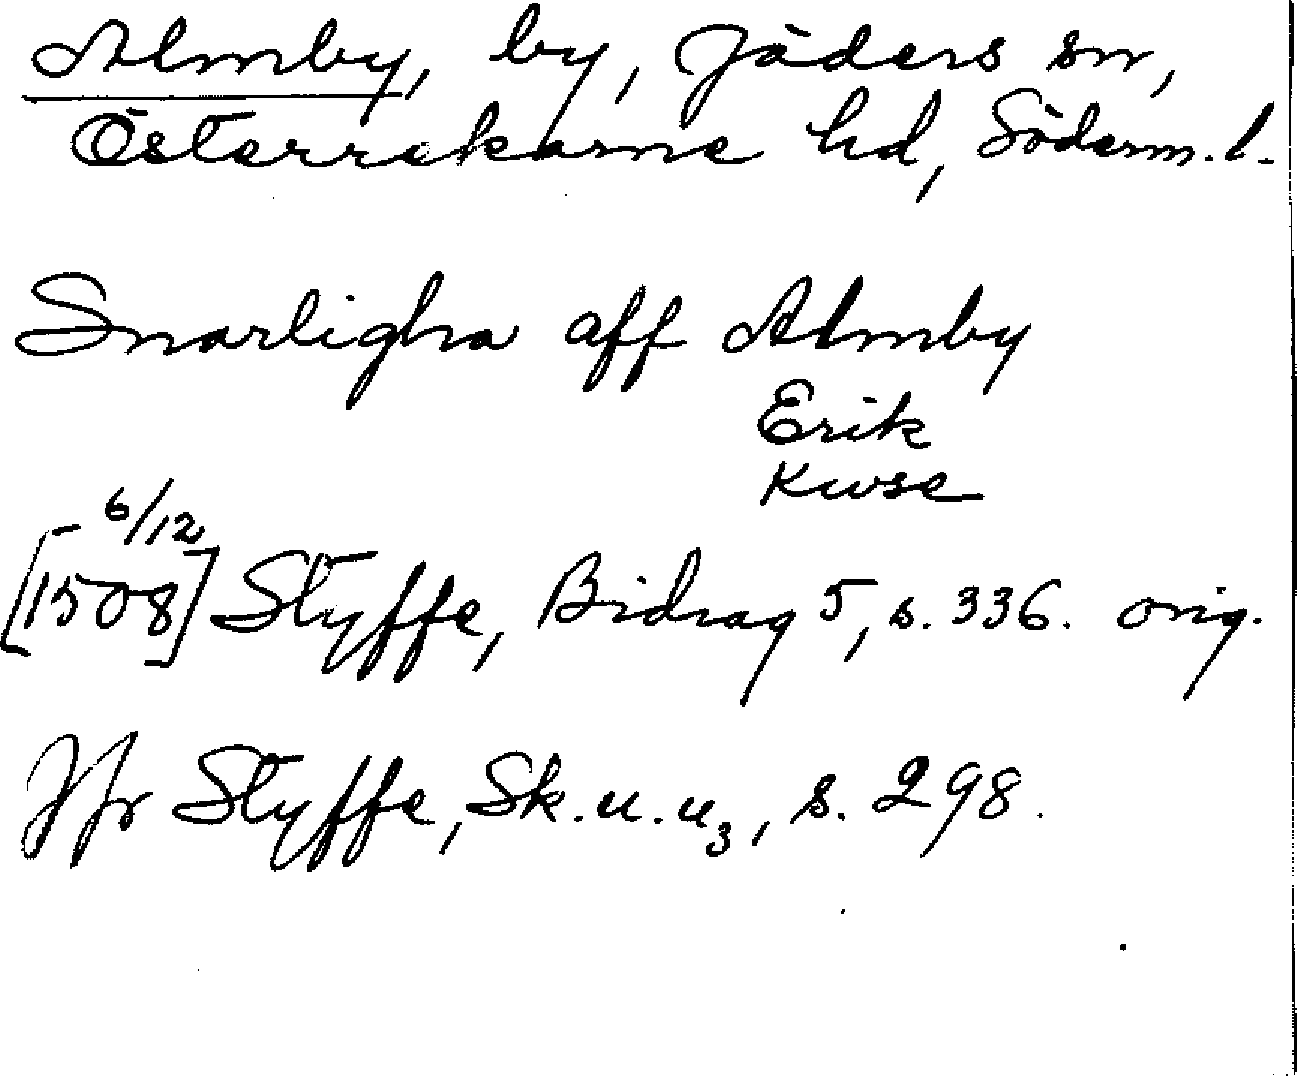 Almby, by, Jäders sn,
Österrekarne hd, Söderm. l.
Snarligha aff Almby
Erik
Kwse
6/12
[1508] Styffe, Bidrag 5, s. 336. orig.
Jfr Styffe, Sk. u. u3, s. 298.